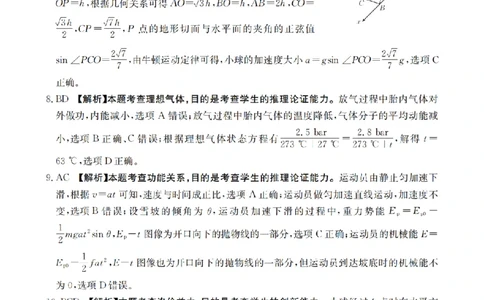 OP=h,根据几何关系可得 AO=√3h,BO=h,AB=2h,CO=
√3h/2,CP=√7h/2,P 点的地形切面与水平面的夹角的正弦值
C
B
sin ∠PCO=2√7/7,由牛顿运动定律可得,小球的加速度大小 a=gsin ∠PCO=2√7/7 g,选项 C
正确。
8. BD 【解析】本题考查理想气体,目的是考查学生的推理论证能力。放气过程中胎内气体对
外做功,内能减小,选项 A 错误;放气过程中胎内气体的温度降低,气体分子的平均动能减
小,选项 B 正确、C 错误;根据理想气体状态方程有 2.5 bar/(273 ℃+27 ℃)=2.8 bar/(273 ℃+t),解得 t=
63 ℃,选项 D 正确。
9. AC 【解析】本题考查功能关系,目的是考查学生的推理论证能力。运动员由静止匀加速下
滑,根据 v=at 可知,速度与时间成正比,选项 A 正确;运动员做匀加速直线运动,加速度不
变,选项 B 错误;设雪坡的倾角为 θ,运动员加速下滑的过程中,重力势能 Eₚ=Eₚ₀−
1/2 mgat² sin θ,Eₚ−t 图像为开口向下的抛物线的一部分,选项 C 正确;运动员的机械能 E=
Eₚ₀−1/2 fat²,E−t 图像也为开口向下的抛物线的一部分,但运动员到达坡底时的机械能不
为 0,选项 D 错误。